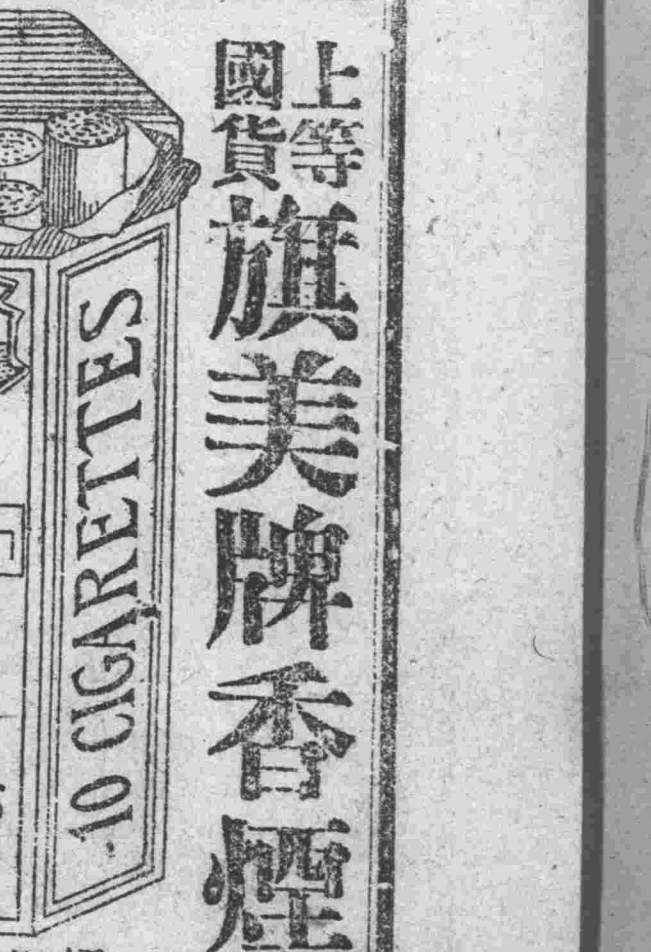 上等
國貨
旗美牌香煙
10 CIGARETTES